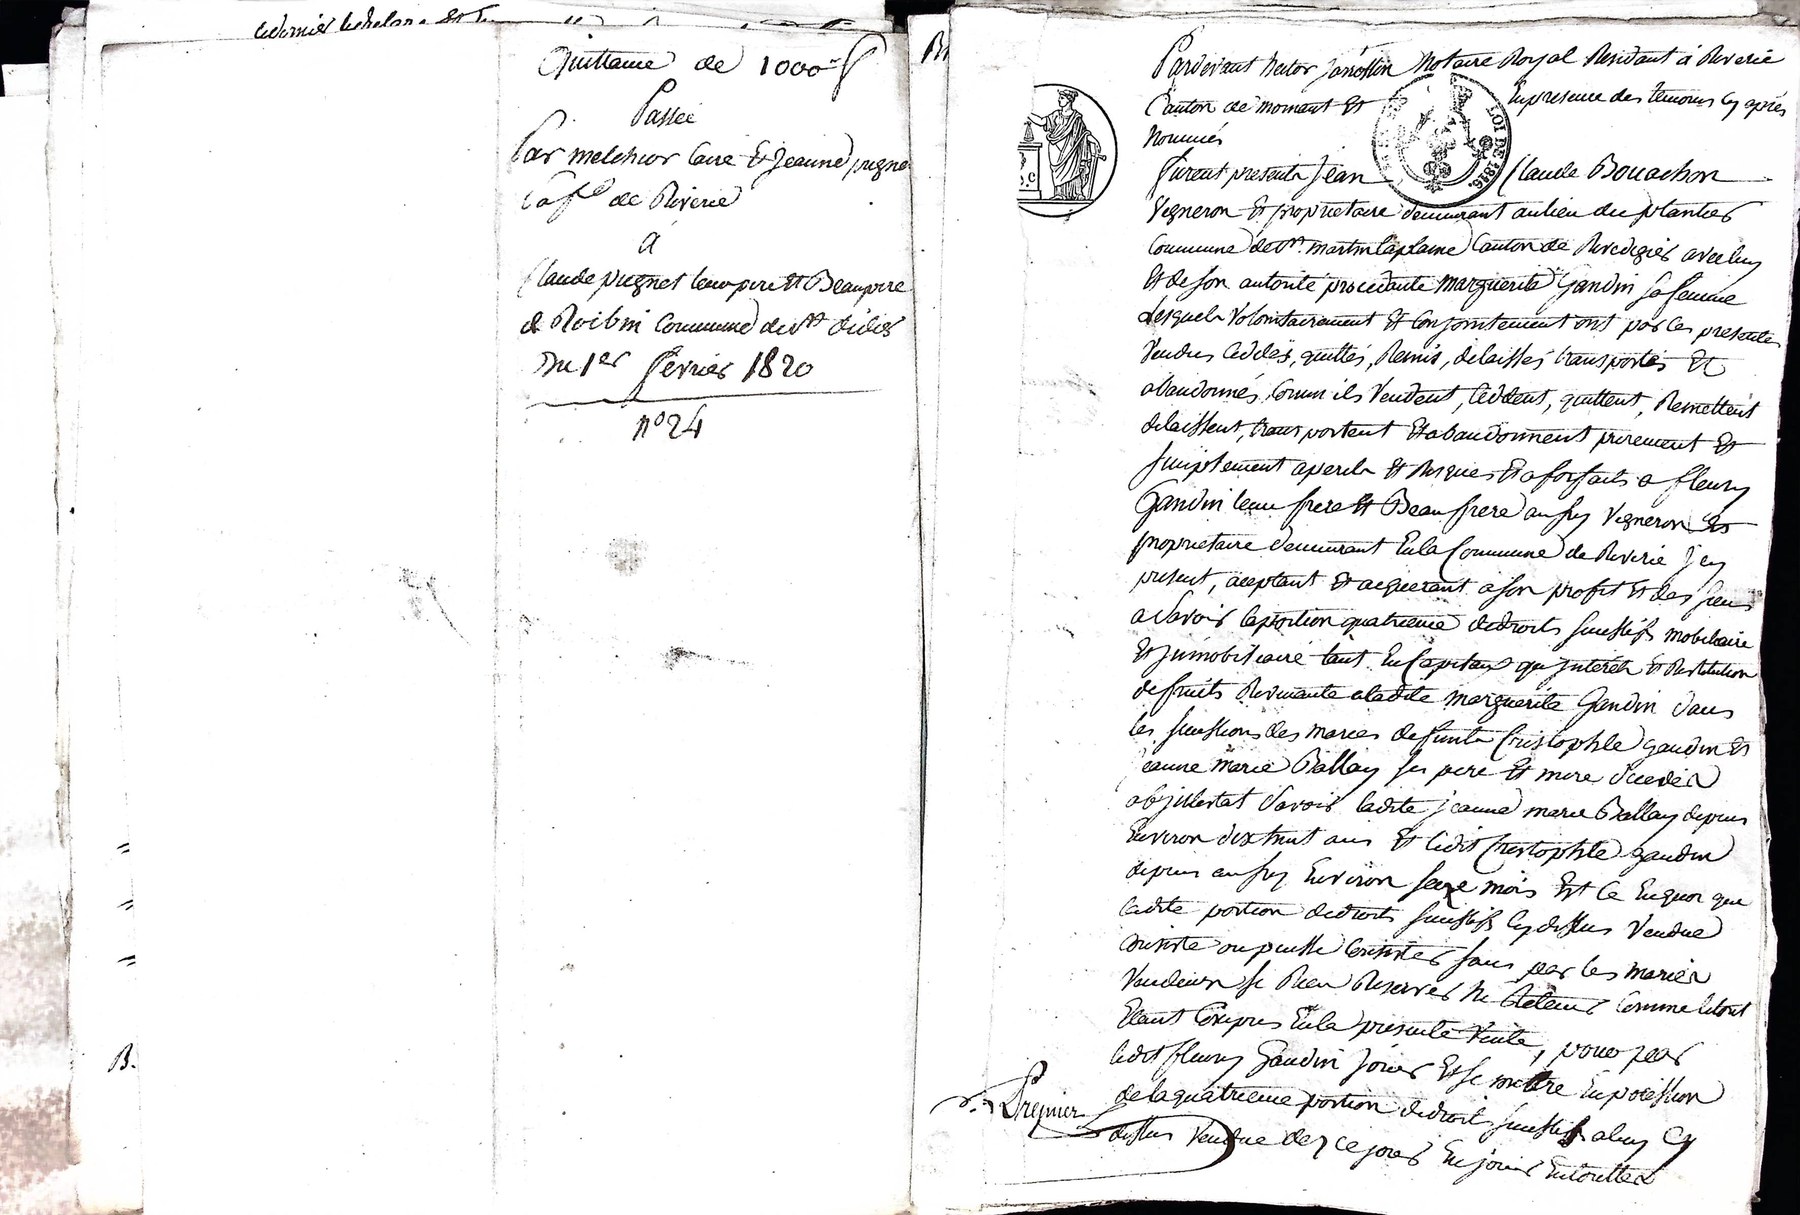 Quittance de 1000 f
Passée
Par melchior Caire Et Jeanne pugnet
de Riverie
A
Claude pugnet leur pere Et Beaupere
de Roibin Commune de st didier
Du 1er fevrier 1820
n° 24
B.
Pardevant hector Notaire Royal Residant á Riverie
Canton de mornant Et En presence des temoins cy après
Nommés
LOI DE 1816.
furent presents Jean Claude Bouachon
Vigneron Et proprietaire demeurant au lieu du plantier
Commune de st. martin la plaine Canton de Rivedegier avec luy
Et de son autorité procédante marguerite Gandin sa femme
Lesquels volontairement Et Conjointement ont par Ces presentes
Vendus Ceddés, quittés, Remis, delaissés transportés Et
abandonnés, Comm ils Vendent, Ceddent, quittent, Remettent
delaissent, transportent Et abandonnent purement Et
simplement a perils Et Risques Et a forfaits a fleury
Gandin leur frere Et Beau frere aussy Vigneron Et
proprietaire demeurant En la Commune de Riverie Jcy
present, aceptant Et acquerant a son profit Et des siens
a Savoir la portion quatrieme de droits sucessifs mobiliaire
Et jmobiliaire tant En Capitaux qu jnterêts Et Restitution
de fruits Revenante a ladite marguerite Gandin dans
les sucessions des maries defunts Cristophle gandin Et
jeanne marie Ballay ses pere Et mere decedés
abjntestat Savoir ladite jeanne marie Ballay depuis
Environ dix huit ans Et ledit Chrestophle gandin
depuis aussy Environ seize mois Est Ce En quoi que
ladite portion de droits sucessifs cy dessus Vendue
Consiste ou puisse Consister sans par les mariés
Vendeurs se Rien Reserver Ni Retenir Comme le tout
Etant Compris En la presente Vente, pour par
ledit fleury Gandin jouir Et se mettre En possession
de la quatrieme portion de droit sucessifs a luy Cy
Premier
dessus Vendue dez ce jour En jouir En toutte